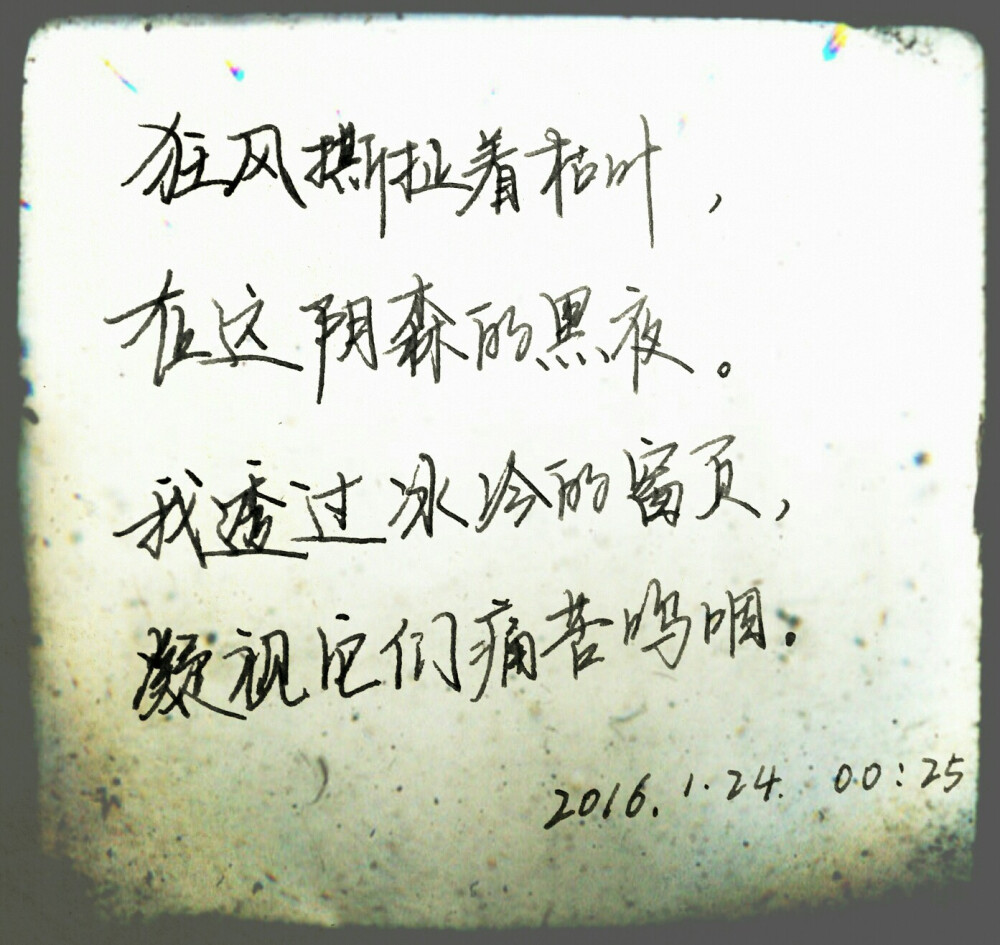 狂风撕扯着枯叶，
在这阴森的黑夜。
我透过冰冷的窗页，
凝视它们痛苦呜咽.
2016.1.24. 00:25